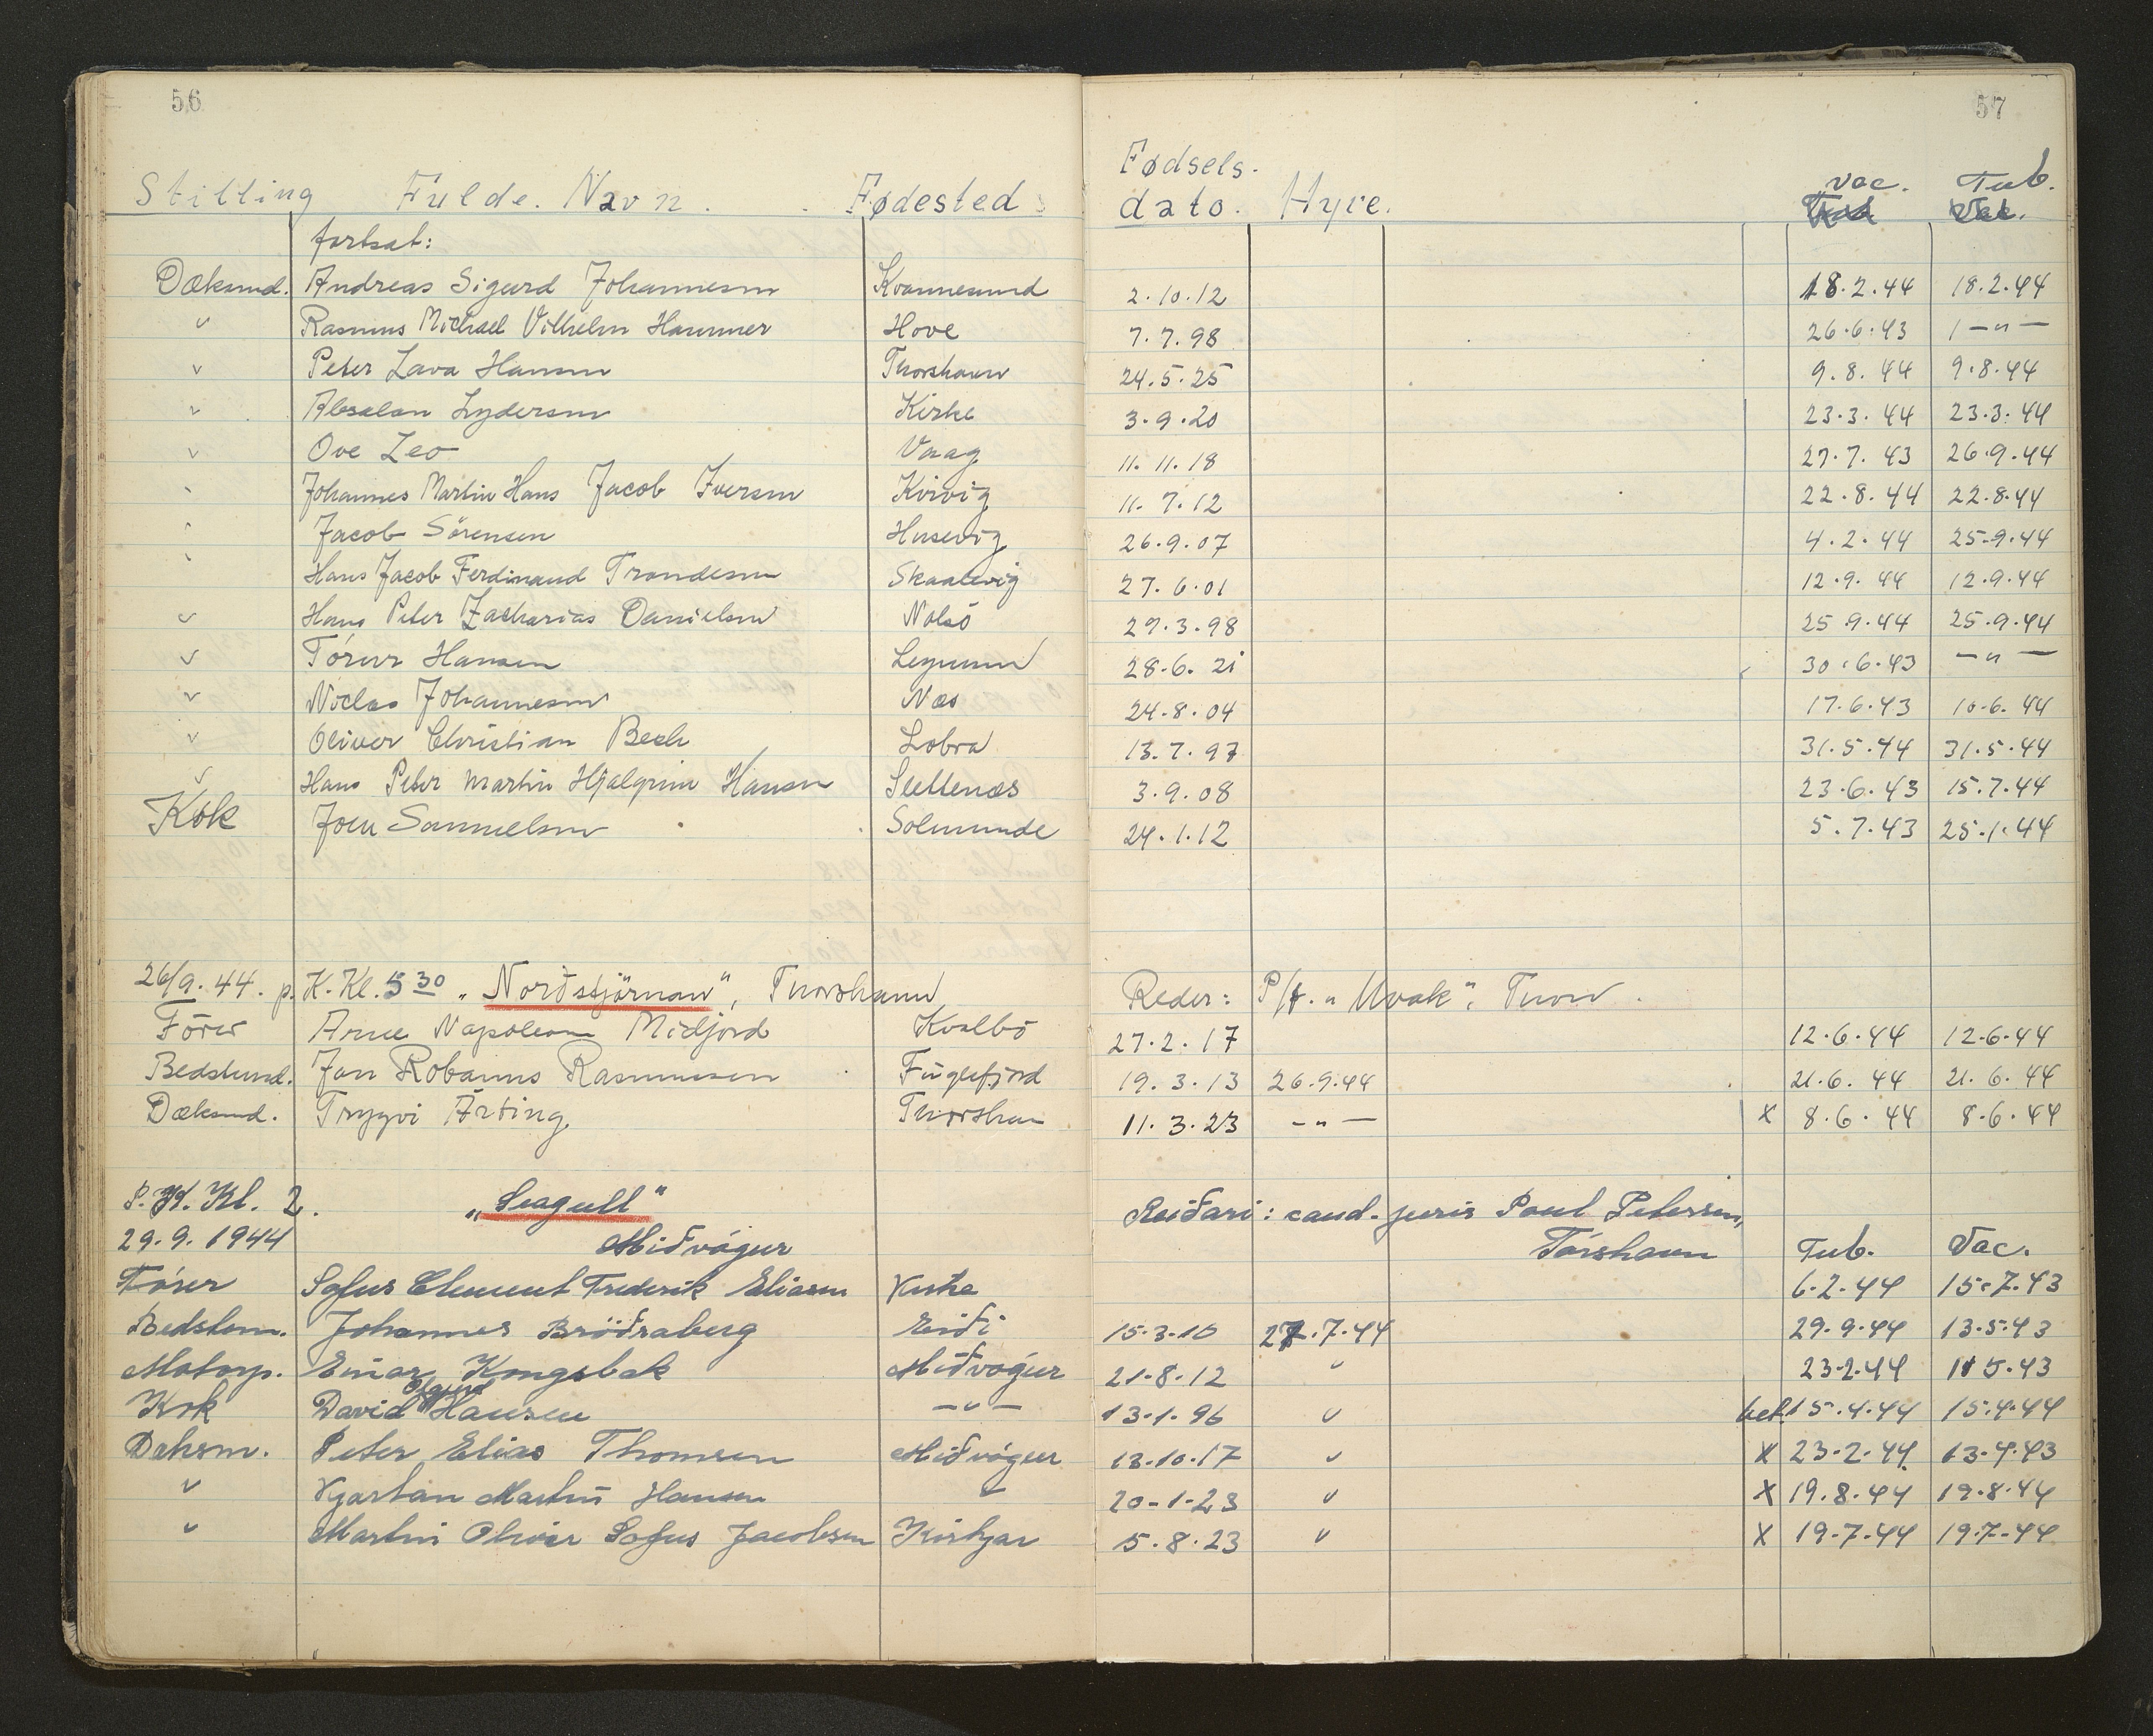 56
57
Stilling Fulde. Navn. Fødested Fødsels- dato. Hyre. Vac. Tub.
fortsat:
Dæksmd. Andreas Sigurd Johannesen Kvannesund 2.10.12 18.2.44 18.2.44
" Rasmus Michael Vilhelm Hammer Hove 7.7.98 26.6.43 1 — " —
" Peter Lava Hansen Thorshavn 24.5.25 9.8.44 9.8.44
" Absalon Lydersen Kirke 3.9.20 23.3.44 23.3.44
" Ove Leo Vaag 11.11.18 27.7.43 26.9.44
" Johannes Martin Hans Jacob Iversen Kvivig 11.7.12 22.8.44 22.8.44
" Jacob Sörensen Husevig 26.9.07 4.2.44 25.9.44
" Hans Jacob Ferdinand Trondesen Skaalevig 27.6.01 12.9.44 12.9.44
" Hans Peter Zacharias Danielsen Nolsö 29.3.98 25.9.44 25.9.44
" Tórur Hansen 28.6.21 30.6.43 — " —
" Niclas Johannesen Næs 24.8.04 17.6.43 10.6.44
" Oliver Christian Bech Lobra 13.7.97 31.5.44 31.5.44
" Hans Peter Martin Hjalgrim Hansen Slettenæs 3.9.08 23.6.43 15.7.44
Kok Joen Samuelsen Solmunde 24.1.12 5.7.43 25.1.44
26/9.44. p. K. Kl. 5 30 „Norðstjörnan", Thorshavn Reder: P/f. "Kvak", Thorw.
Förer Arne Napoleon Midjord Kvalbö 27.2.17 12.6.44 12.6.44
Bedstemd. Jon Robanus Rasmussen Fuglefjord 19.3.13 26.9.44 21.6.44 21.6.44
Dæksmd. Tryggvi Arting Thorshavn 11.3.23 — " — X 8.6.44 8.6.44
P. K. Kl. 2. „Seagull" Reiðari: cand. juris Poul Petersen,
29.9.1944 Miðvágur Tórshavn Tub. Vac.
Förer Sofus Clement Frederik Eliasen Kirke 6.2.44 15.7.43
Bedstem. Johannes Bröðraberg Eiði 15.3.10 27.7.44 29.9.44 13.5.43
Motorp. Einar Kongsbak Miðvágur 21.8.12 " 23.2.44 11.5.43
Kok David Hansen — " — 13.1.96 " bef. 15.4.44 15.4.44
Deksm. Peter Elias Thomsen Miðvágur 13.10.17 " X 23.2.44 13.4.43
" Kjartan Martin Hansen " 20-1-23 " X 19.8.44 19.8.44
" Martin Oliver Sofus Jacobsen Kirkjar 5.8.23 " X 19-7-44 19.7-44